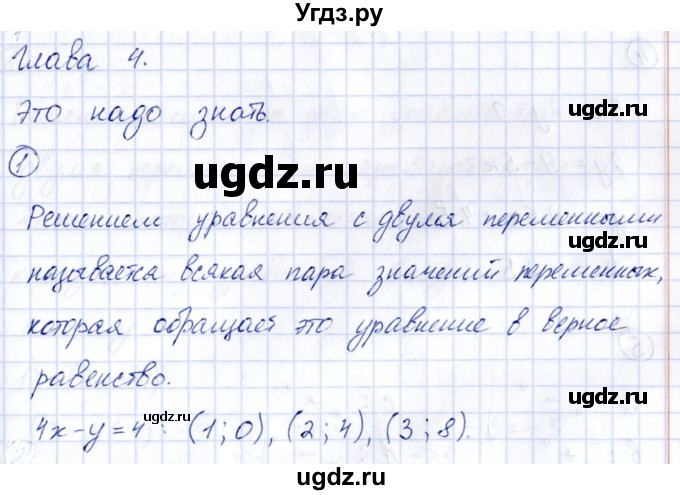 Угдз.ру
Глава 4.
Это надо знать.
ugdz.ru
1
ugdz.ru
Решением уравнения с двумя переменными
называется всякая пара значений переменных,
ugdz.ru
которая обращает это уравнение в верное
равенство.
ugdz.ru
ugdz.ru
4x-y=4 : (1; 0), (2; 4), (3; 8).
ugdz.ru